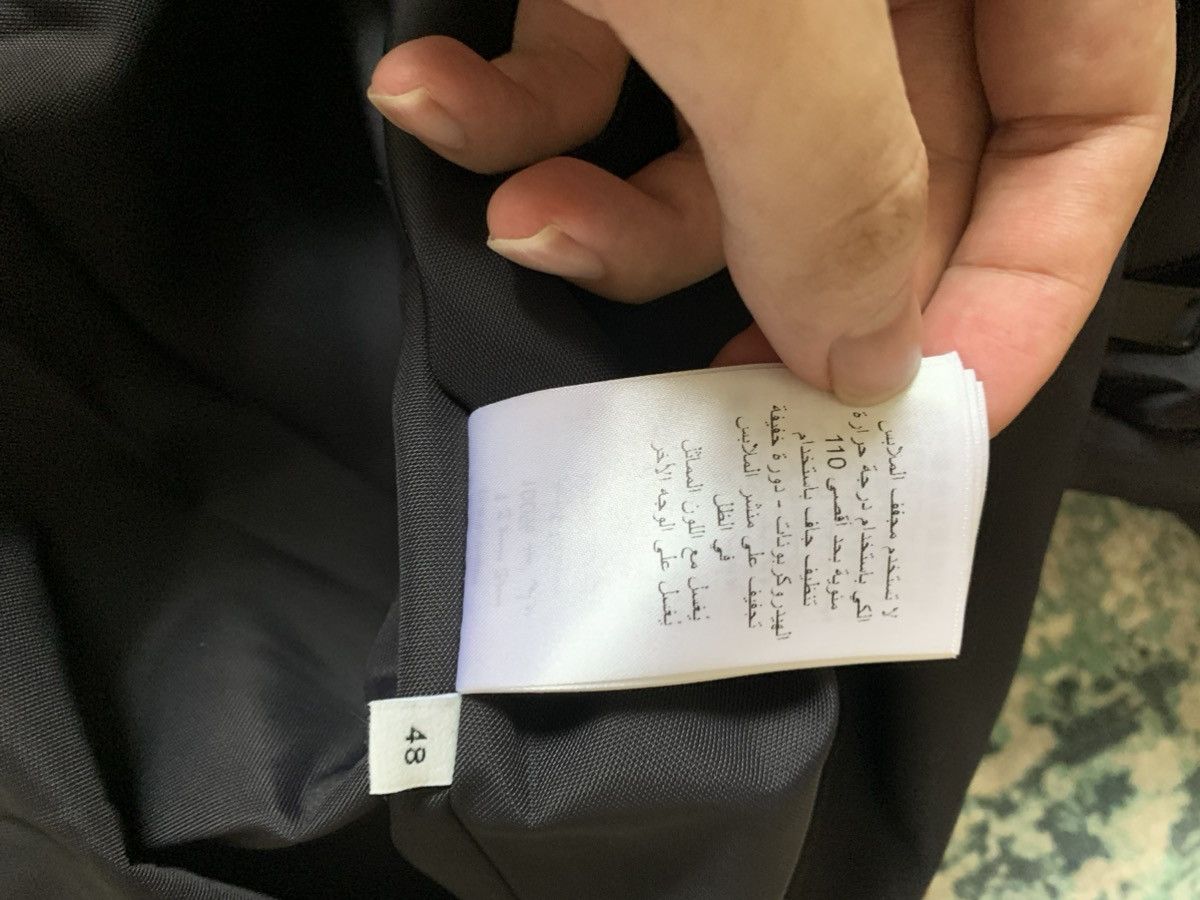 لا تستخدم مجفف الملابس
الكي باستخدام درجة حرارة
مئوية بحد أقصى 110
تنظيف جاف باستخدام
الهيدروكربونات - دورة خفيفة
تجفيف على منشر الملابس
في الظل
تغسل مع اللون المماثل
تغسل على الوجه الآخر
48